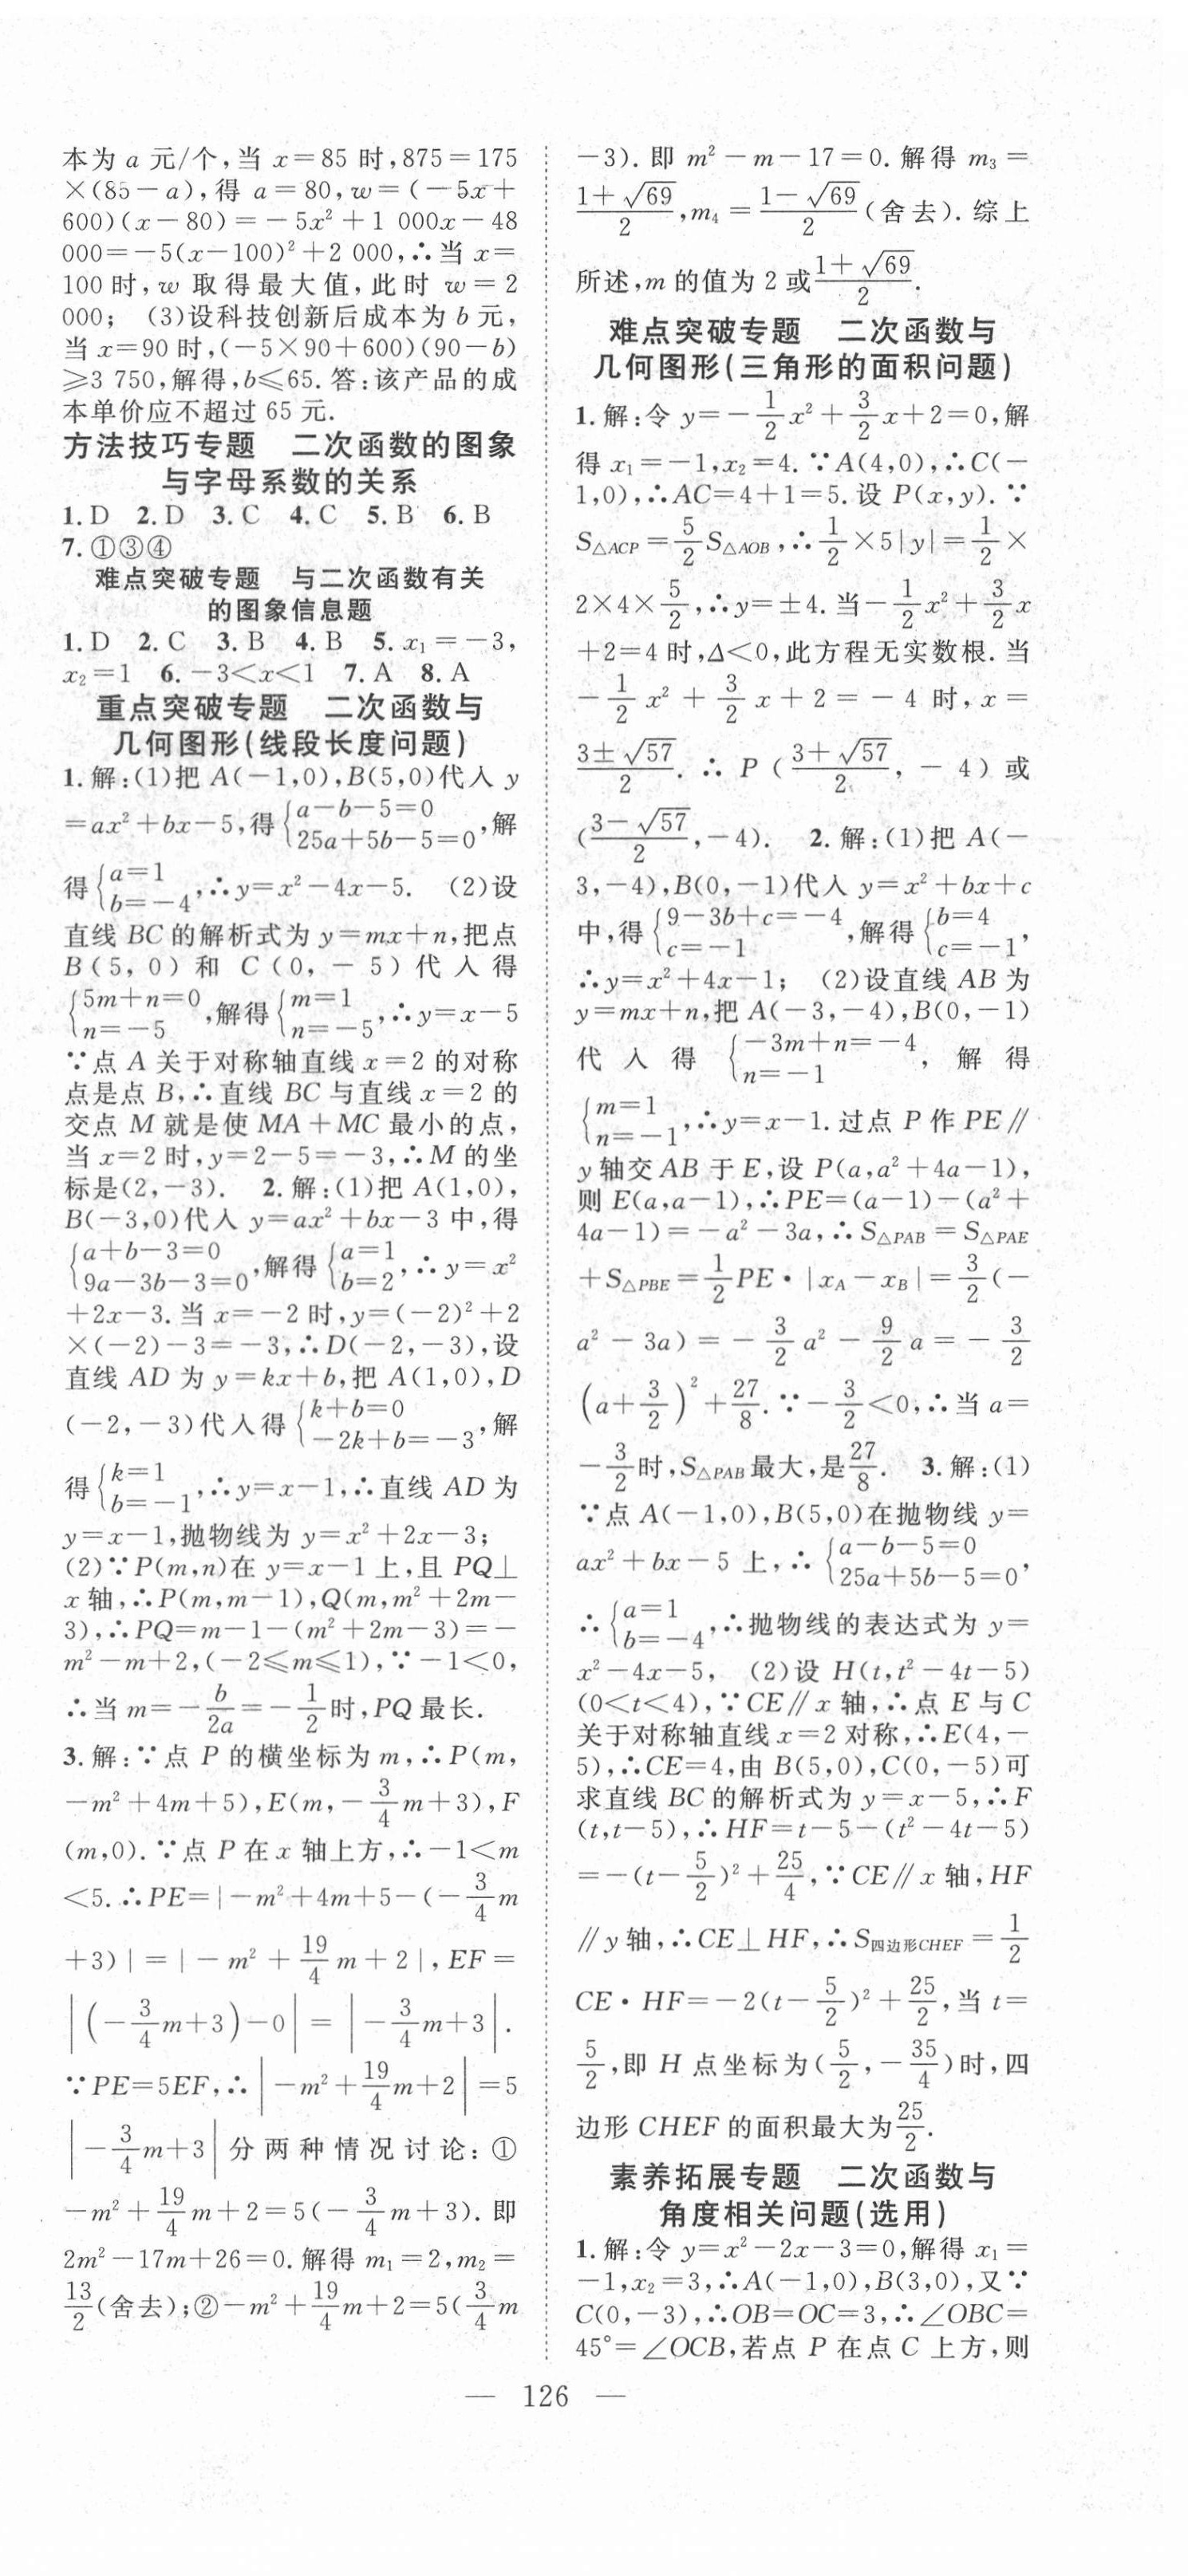 本为 a 元/个,当 x=85 时,875=175
×(85-a),得 a=80,w=(-5x+
600)(x-80)=-5x²+1 000x-48
000=-5(x-100)²+2 000,∴当 x=
100 时,w 取得最大值,此时 w=2
000; (3)设科技创新后成本为 b 元,
当 x=90 时,(-5×90+600)(90-b)
≥3 750,解得,b≤65.答:该产品的成
本单价应不超过 65 元.
方法技巧专题 二次函数的图象
与字母系数的关系
1.D 2.D 3.C 4.C 5.B 6.B
7.①③④
难点突破专题 与二次函数有关
的图象信息题
1.D 2.C 3.B 4.B 5.x₁=-3,
x₂=1 6.-3<x<1 7.A 8.A
重点突破专题 二次函数与
几何图形(线段长度问题)
1.解:(1)把 A(-1,0),B(5,0)代入 y
=ax²+bx-5,得{a-b-5=0 25a+5b-5=0,解
得{a=1 b=-4,∴y=x²-4x-5. (2)设
直线 BC 的解析式为 y=mx+n,把点
B(5,0)和 C(0,-5)代入得
{5m+n=0 n=-5,解得{m=1 n=-5,∴y=x-5
∵点 A 关于对称轴直线 x=2 的对称
点是点 B,∴直线 BC 与直线 x=2 的
交点 M 就是使 MA+MC 最小的点,
当 x=2 时,y=2-5=-3,∴M 的坐
标是(2,-3). 2.解:(1)把 A(1,0),
B(-3,0)代入 y=ax²+bx-3 中,得
{a+b-3=0 9a-3b-3=0,解得{a=1 b=2,∴y=x²
+2x-3.当 x=-2 时,y=(-2)²+2
×(-2)-3=-3,∴D(-2,-3),设
直线 AD 为 y=kx+b,把 A(1,0),D
(-2,-3)代入得{k+b=0 -2k+b=-3,解
得{k=1 b=-1,∴y=x-1,∴直线 AD 为
y=x-1,抛物线为 y=x²+2x-3;
(2)∵P(m,n)在 y=x-1 上,且 PQ⊥
x 轴,∴P(m,m-1),Q(m,m²+2m-
3),∴PQ=m-1-(m²+2m-3)=-
m²-m+2,(-2≤m≤1),∵-1<0,
∴当 m=-b/2a=-1/2时,PQ 最长.
3.解:∵点 P 的横坐标为 m,∴P(m,
-m²+4m+5),E(m,-3/4m+3),F
(m,0).∵点 P 在 x 轴上方,∴-1<m
<5.∴PE=|-m²+4m+5-(-3/4m
+3)|=|-m²+19/4m+2|,EF=
|(-3/4m+3)-0|=|-3/4m+3|.
∵PE=5EF,∴|-m²+19/4m+2|=5
|-3/4m+3|分两种情况讨论:①
-m²+19/4m+2=5(-3/4m+3).即
2m²-17m+26=0.解得 m₁=2,m₂=
13/2(舍去);②-m²+19/4m+2=5(3/4m
-3).即 m²-m-17=0.解得 m₃=
(1+√69)/2,m₄=(1-√69)/2(舍去).综上
所述,m 的值为 2 或(1+√69)/2.
难点突破专题 二次函数与
几何图形(三角形的面积问题)
1.解:令 y=-1/2x²+3/2x+2=0,解
得 x₁=-1,x₂=4.∵A(4,0),∴C(-
1,0),∴AC=4+1=5.设 P(x,y).∵
S△ACP=5/2S△AOB,∴1/2×5|y|=1/2×
2×4×5/2,∴y=±4.当-1/2x²+3/2x
+2=4 时,Δ<0,此方程无实数根.当
-1/2x²+3/2x+2=-4 时,x=
(3±√57)/2.∴P((3+√57)/2,-4)或
((3-√57)/2,-4). 2.解:(1)把 A(-
3,-4),B(0,-1)代入 y=x²+bx+c
中,得{9-3b+c=-4 c=-1,解得{b=4 c=-1,
∴y=x²+4x-1; (2)设直线 AB 为
y=mx+n,把 A(-3,-4),B(0,-1)
代入得{-3m+n=-4 n=-1,解得
{m=1 n=-1,∴y=x-1.过点 P 作 PE∥
y 轴交 AB 于 E,设 P(a,a²+4a-1),
则 E(a,a-1),∴PE=(a-1)-(a²+
4a-1)=-a²-3a,∴S△PAB=S△PAE
+S△PBE=1/2PE·|xA-xB|=3/2(-
a²-3a)=-3/2a²-9/2a=-3/2
(a+3/2)²+27/8.∵-3/2<0,∴当 a=
-3/2时,S△PAB最大,是27/8. 3.解:(1)
∵点 A(-1,0),B(5,0)在抛物线 y=
ax²+bx-5 上,∴{a-b-5=0 25a+5b-5=0,
∴{a=1 b=-4,∴抛物线的表达式为 y=
x²-4x-5, (2)设 H(t,t²-4t-5)
(0<t<4),∵CE∥x 轴,∴点 E 与 C
关于对称轴直线 x=2 对称,∴E(4,-
5),∴CE=4,由 B(5,0),C(0,-5)可
求直线 BC 的解析式为 y=x-5,∴F
(t,t-5),∴HF=t-5-(t²-4t-5)
=-(t-5/2)²+25/4,∵CE∥x 轴,HF
∥y 轴,∴CE⊥HF,∴S四边形CHEF=1/2
CE·HF=-2(t-5/2)²+25/2,当 t=
5/2,即 H 点坐标为(5/2,-35/4)时,四
边形 CHEF 的面积最大为25/2.
素养拓展专题 二次函数与
角度相关问题(选用)
1.解:令 y=x²-2x-3=0,解得 x₁=
-1,x₂=3,∴A(-1,0),B(3,0),又∵
C(0,-3),∴OB=OC=3,∴∠OBC=
45°=∠OCB,若点 P 在点 C 上方,则
— 126 —